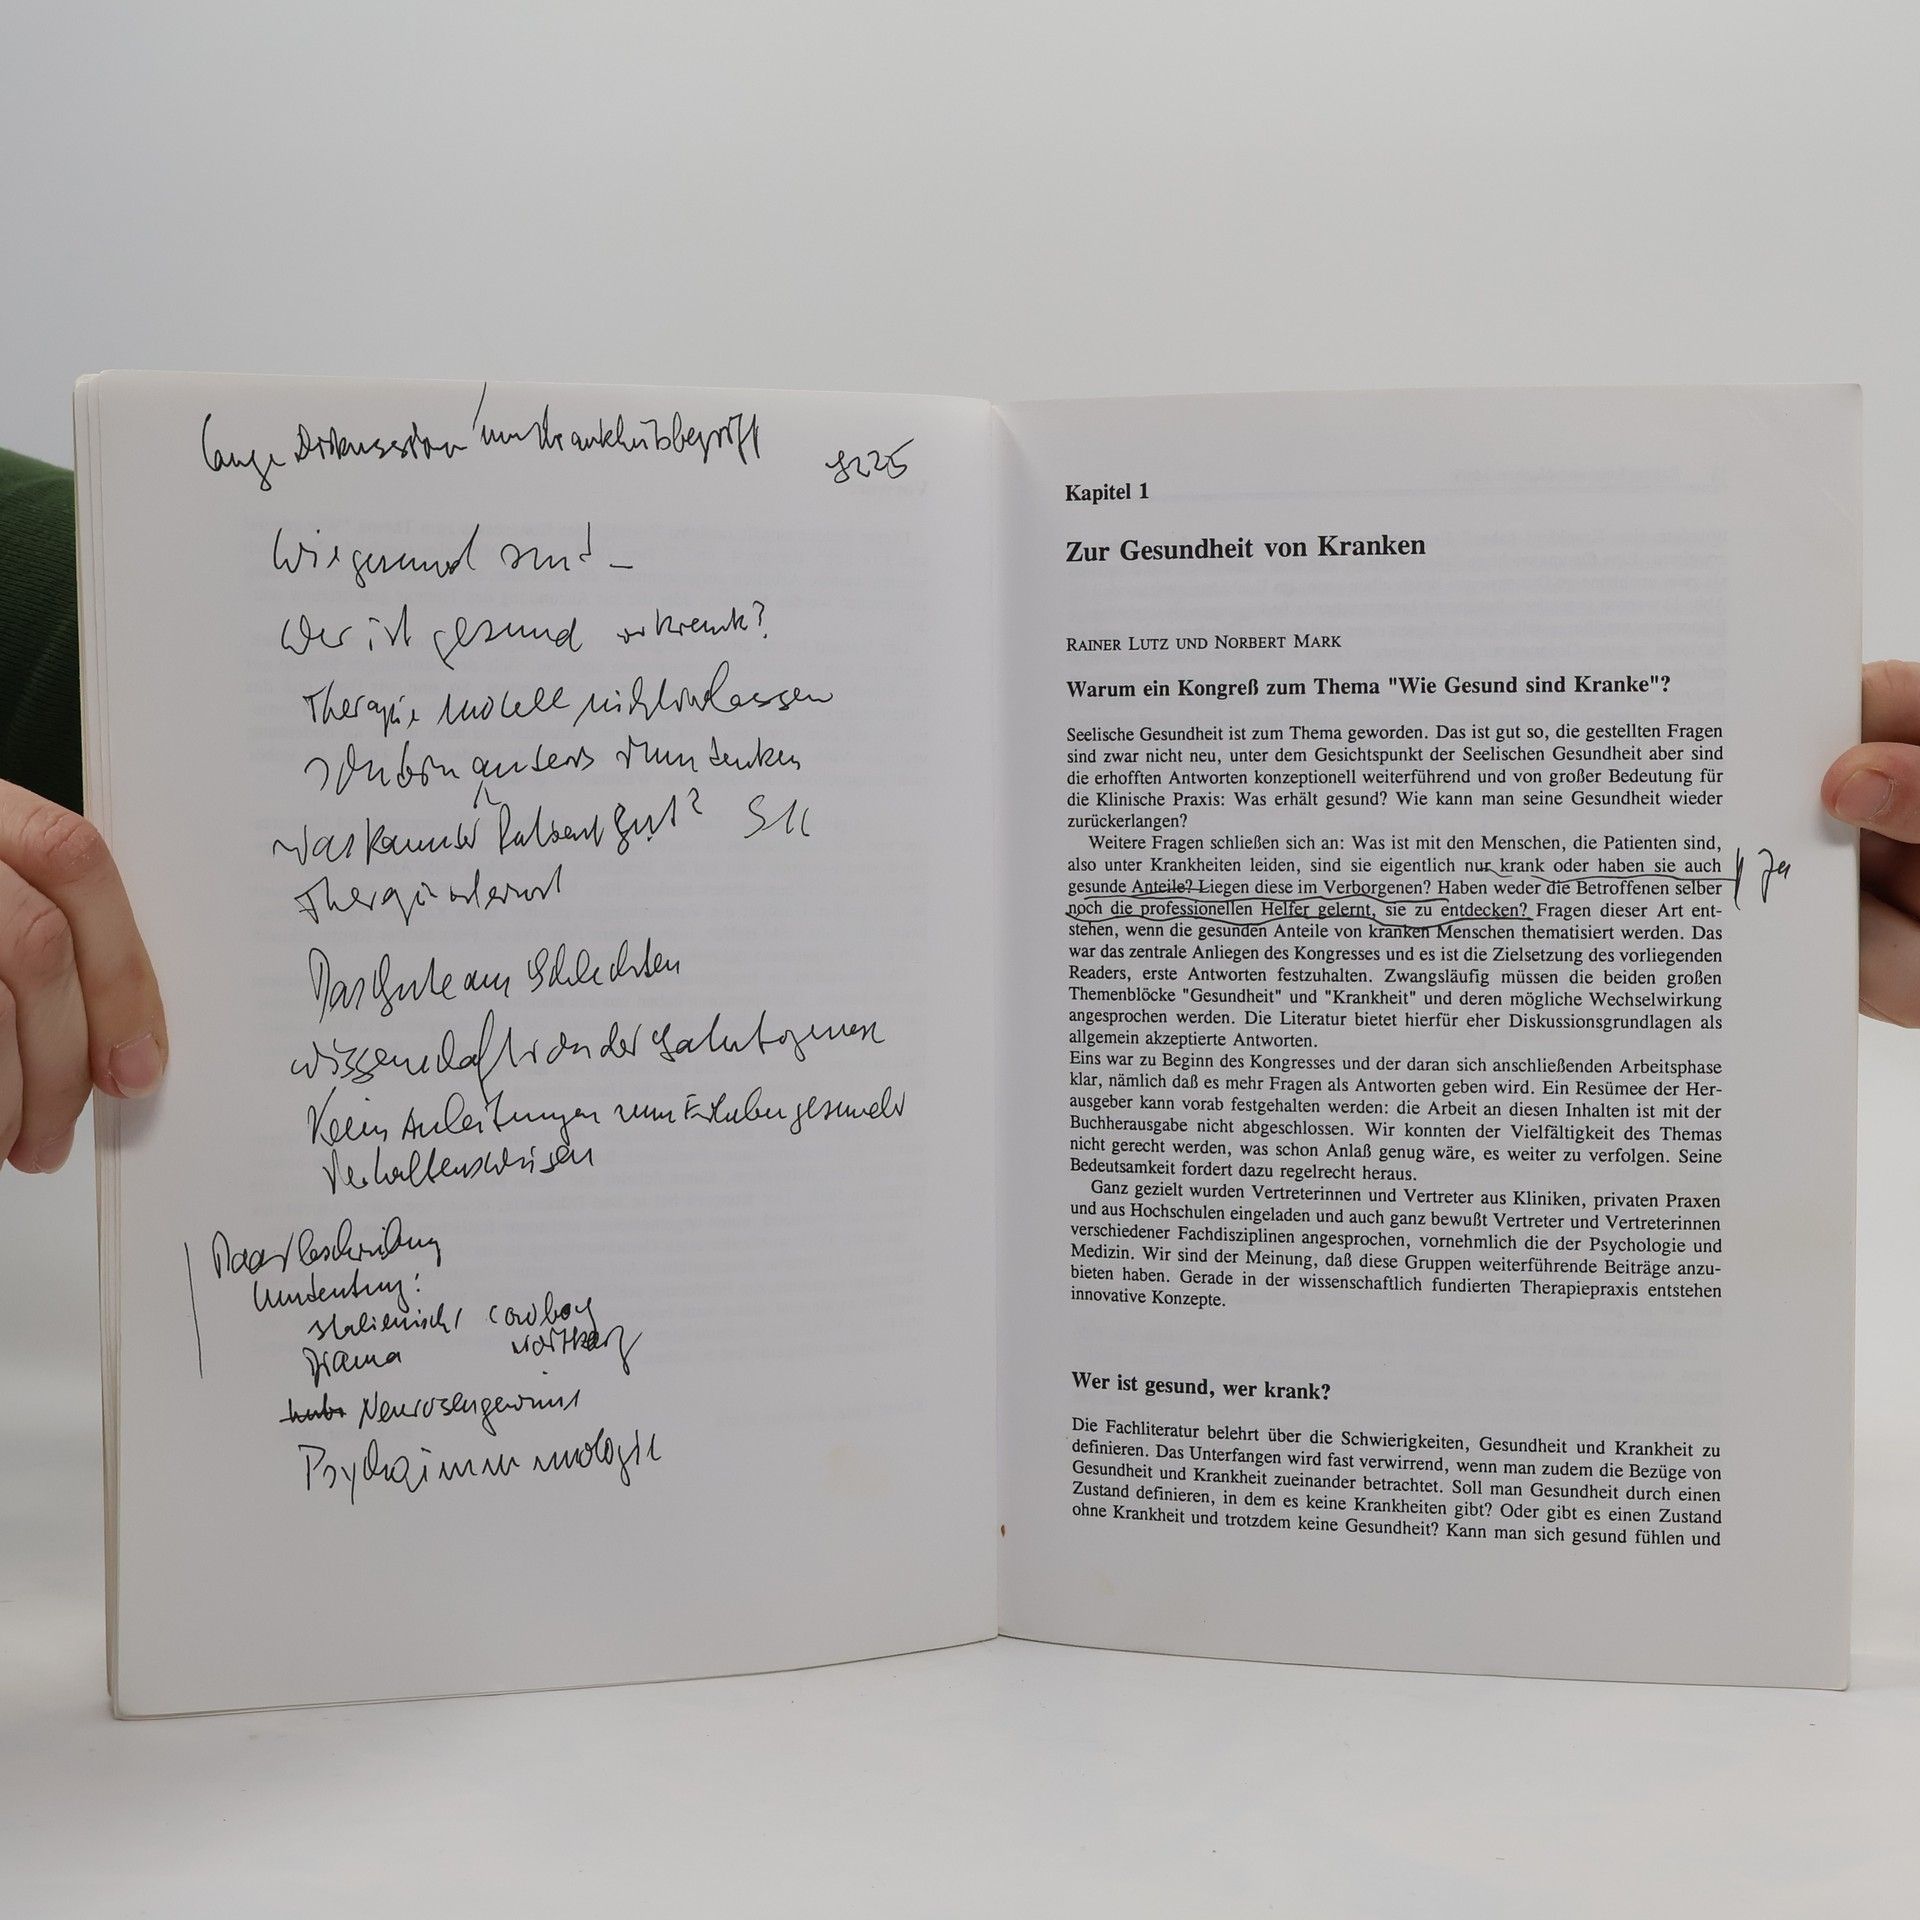 lange Diskussion um Krankheitsbegriff
Wie gesund sind –
Wer ist gesund wer krank?
Therapie Modell nicht
sondern anders denken
was kann der Patient gut?
Das Gute am Schlechten
wissenschaft der Salutogenese
Keine Anleitungen zum gesunder
Verhaltensweisen
Umdeutung:
italienisch Cowboy
Drama
Neurosengewinn
Psychoimmunologie
Kapitel 1
Zur Gesundheit von Kranken
RAINER LUTZ UND NORBERT MARK
Warum ein Kongreß zum Thema "Wie Gesund sind Kranke"?
Seelische Gesundheit ist zum Thema geworden. Das ist gut so, die gestellten Fragen
sind zwar nicht neu, unter dem Gesichtspunkt der Seelischen Gesundheit aber sind
die erhofften Antworten konzeptionell weiterführend und von großer Bedeutung für
die Klinische Praxis: Was erhält gesund? Wie kann man seine Gesundheit wieder
zurückerlangen?
Weitere Fragen schließen sich an: Was ist mit den Menschen, die Patienten sind,
also unter Krankheiten leiden, sind sie eigentlich nur krank oder haben sie auch
gesunde Anteile? Liegen diese im Verborgenen? Haben weder die Betroffenen selber
ja
noch die professionellen Helfer gelernt, sie zu entdecken? Fragen dieser Art ent-
stehen, wenn die gesunden Anteile von kranken Menschen thematisiert werden. Das
war das zentrale Anliegen des Kongresses und es ist die Zielsetzung des vorliegenden
Readers, erste Antworten festzuhalten. Zwangsläufig müssen die beiden großen
Themenblöcke "Gesundheit" und "Krankheit" und deren mögliche Wechselwirkung
angesprochen werden. Die Literatur bietet hierfür eher Diskussionsgrundlagen als
allgemein akzeptierte Antworten.
Eins war zu Beginn des Kongresses und der daran sich anschließenden Arbeitsphase
klar, nämlich daß es mehr Fragen als Antworten geben wird. Ein Resümee der Her-
ausgeber kann vorab festgehalten werden: die Arbeit an diesen Inhalten ist mit der
Buchherausgabe nicht abgeschlossen. Wir konnten der Vielfältigkeit des Themas
nicht gerecht werden, was schon Anlaß genug wäre, es weiter zu verfolgen. Seine
Bedeutsamkeit fordert dazu regelrecht heraus.
Ganz gezielt wurden Vertreterinnen und Vertreter aus Kliniken, privaten Praxen
und aus Hochschulen eingeladen und auch ganz bewußt Vertreter und Vertreterinnen
verschiedener Fachdisziplinen angesprochen, vornehmlich die der Psychologie und
Medizin. Wir sind der Meinung, daß diese Gruppen weiterführende Beiträge anzu-
bieten haben. Gerade in der wissenschaftlich fundierten Therapiepraxis entstehen
innovative Konzepte.
Wer ist gesund, wer krank?
Die Fachliteratur belehrt über die Schwierigkeiten, Gesundheit und Krankheit zu
definieren. Das Unterfangen wird fast verwirrend, wenn man zudem die Bezüge von
Gesundheit und Krankheit zueinander betrachtet. Soll man Gesundheit durch einen
Zustand definieren, in dem es keine Krankheiten gibt? Oder gibt es einen Zustand
ohne Krankheit und trotzdem keine Gesundheit? Kann man sich gesund fühlen und